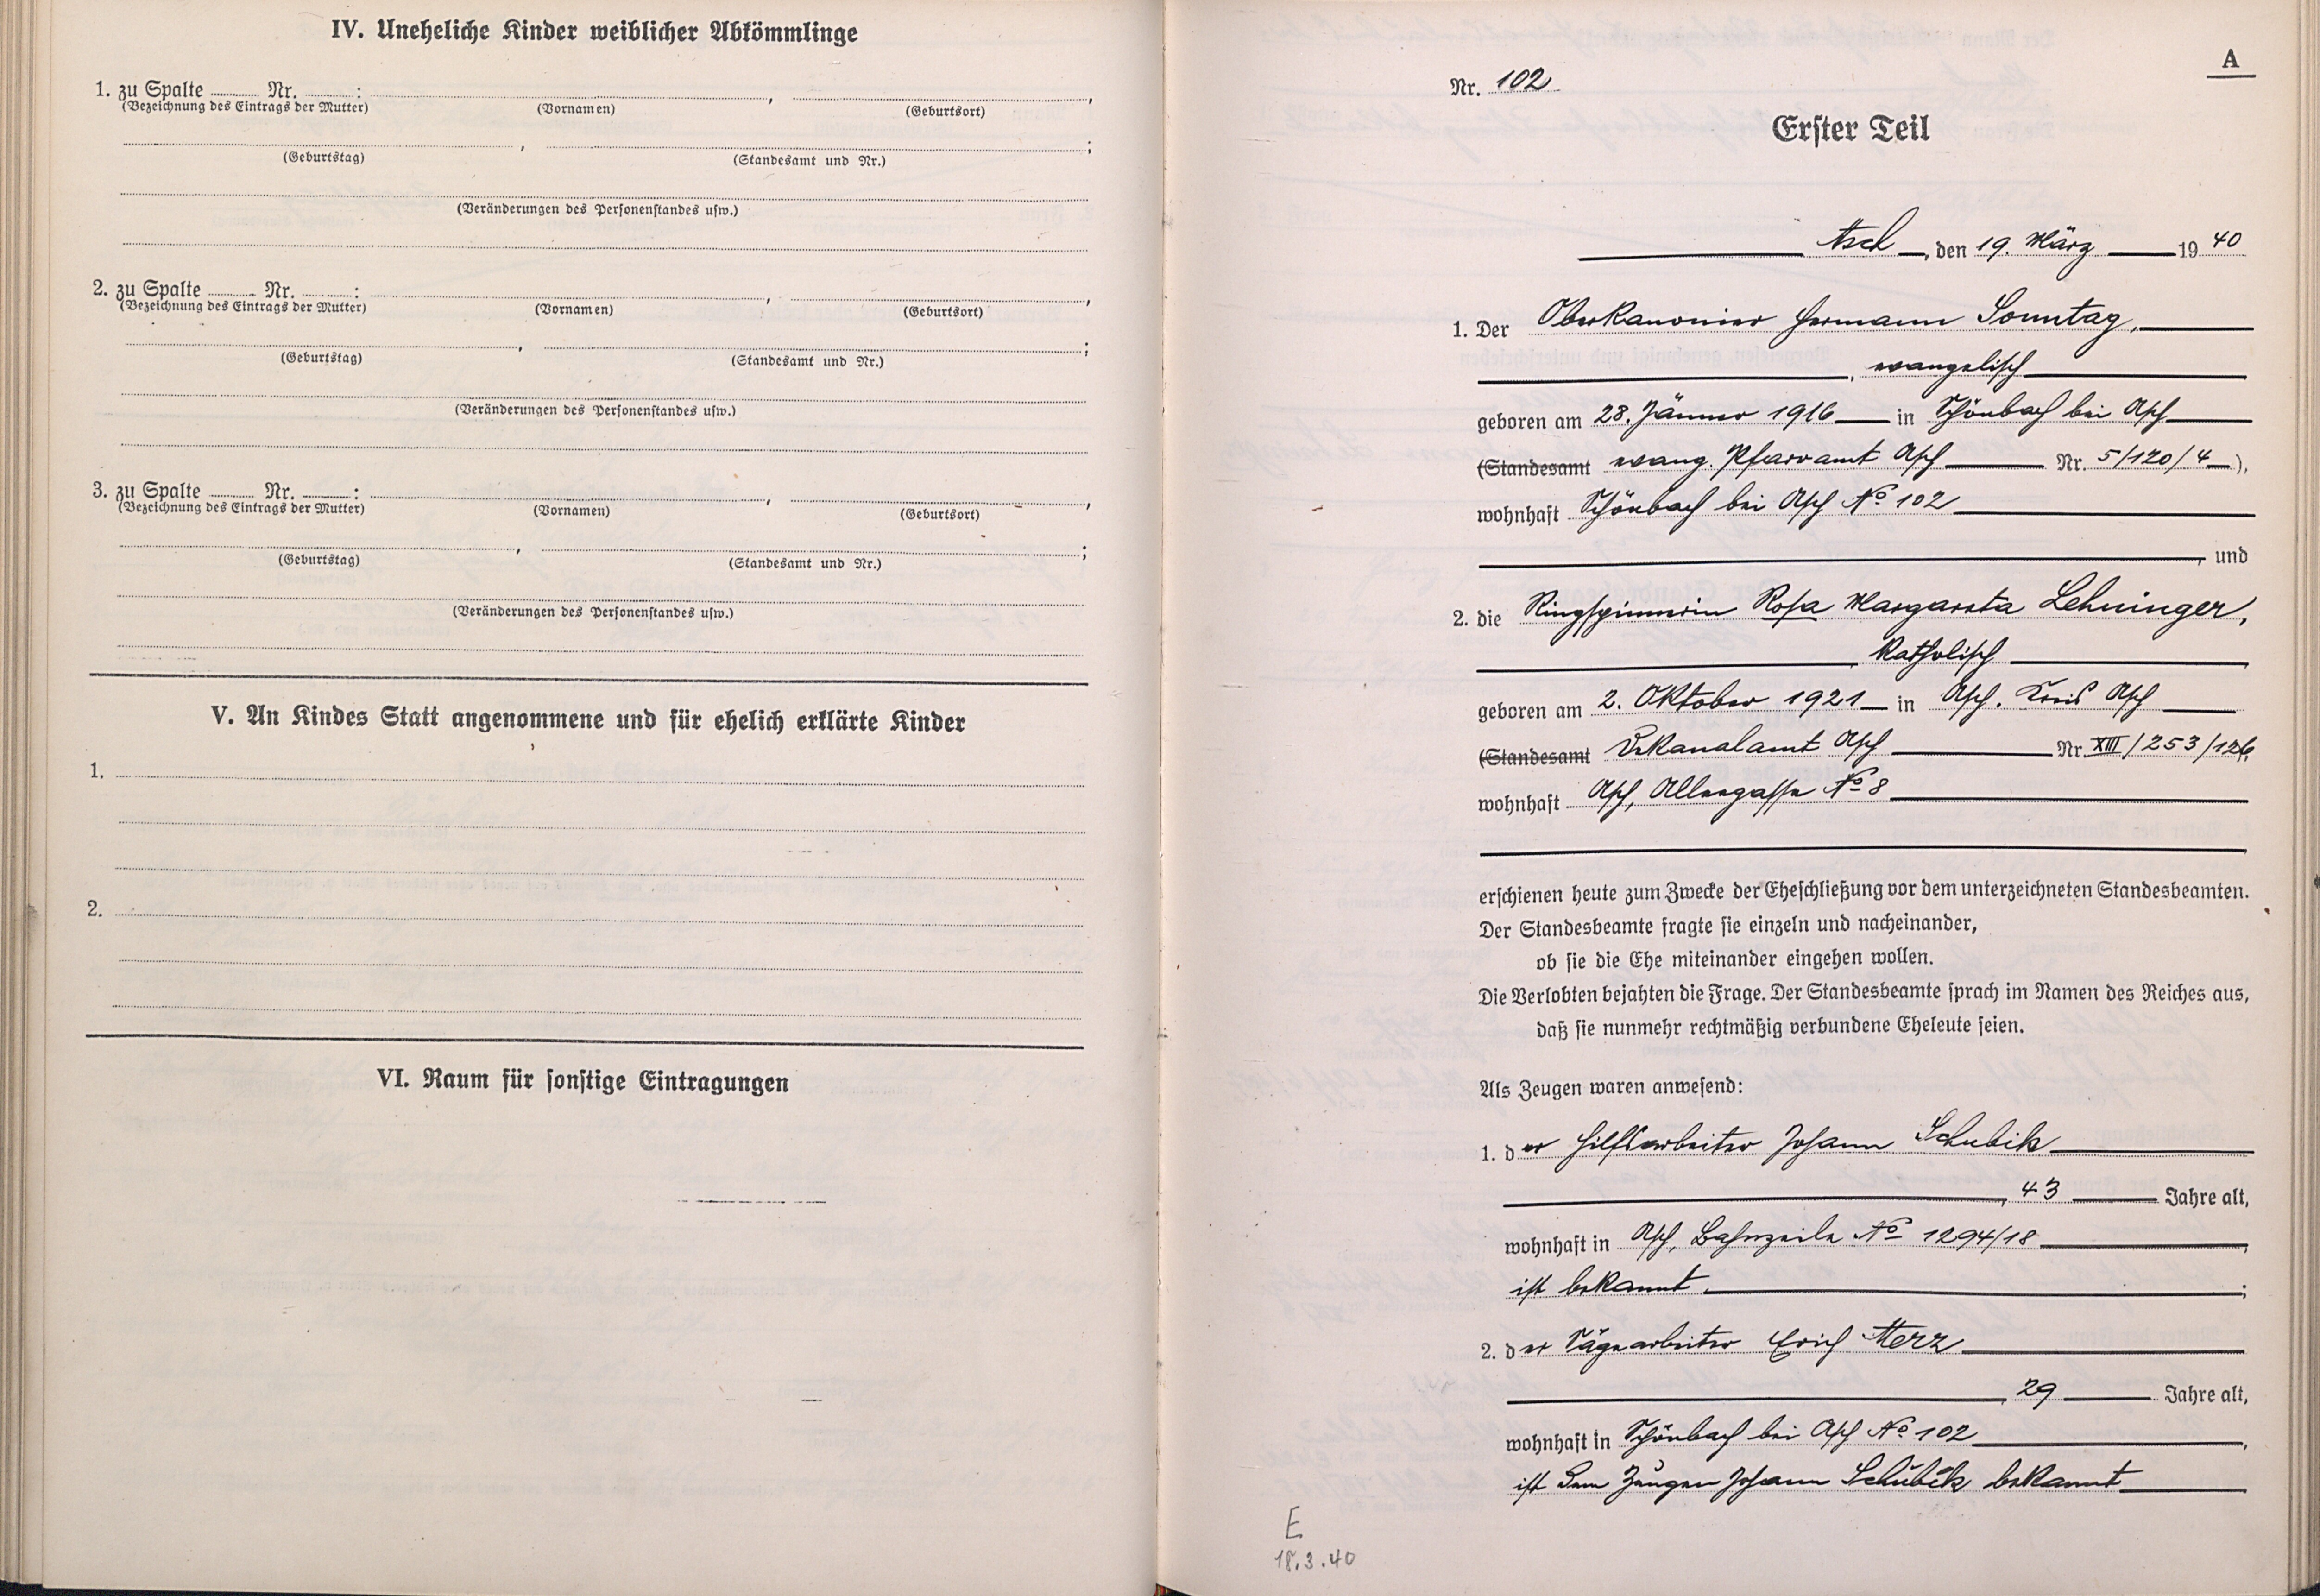 IV. Uneheliche Kinder weiblicher Abkömmlinge
1. zu Spalte ........ Nr. ........ :
(Bezeichnung des Eintrags der Mutter) (Vornamen) (Geburtsort)
(Geburtstag) , (Standesamt und Nr.) ;
(Veränderungen des Personenstandes usw.)
2. zu Spalte ........ Nr. ........ :
(Bezeichnung des Eintrags der Mutter) (Vornamen) (Geburtsort)
(Geburtstag) , (Standesamt und Nr.) ;
(Veränderungen des Personenstandes usw.)
3. zu Spalte ........ Nr. ........ :
(Bezeichnung des Eintrags der Mutter) (Vornamen) (Geburtsort)
(Geburtstag) , (Standesamt und Nr.) ;
(Veränderungen des Personenstandes usw.)
V. An Kindes Statt angenommene und für ehelich erklärte Kinder
1.
2.
VI. Raum für sonstige Eintragungen
A
Nr. 102
Erster Teil
Asch, den 19. März 1940
1. Der Oberkanonier Hermann Sonntag,
, evangelisch
geboren am 28. Jänner 1916 in Schönbach bei Asch
(Standesamt evang. Pfarramt Asch Nr. 5/120/4 ),
wohnhaft Schönbach bei Asch No 102
, und
2. die Ringspinnerin Rosa Margareta Lehninger,
katholisch
geboren am 2. Oktober 1921 in Asch, Kreis Asch
(Standesamt Dekanalamt Asch Nr. XIII/253/126),
wohnhaft Asch, Alleegasse No 8
erschienen heute zum Zwecke der Eheschließung vor dem unterzeichneten Standesbeamten.
Der Standesbeamte fragte sie einzeln und nacheinander,
ob sie die Ehe miteinander eingehen wollen.
Die Verlobten bejahten die Frage. Der Standesbeamte sprach im Namen des Reiches aus,
daß sie nunmehr rechtmäßig verbundene Eheleute seien.
Als Zeugen waren anwesend:
1. der Hilfsarbeiter Johann Schubik
, 43 Jahre alt,
wohnhaft in Asch, Bahnzeile No 1294/18 ,
ist bekannt. ;
2. der Sägearbeiter Erich Merz
, 29 Jahre alt,
wohnhaft in Schönbach bei Asch No 102 ,
ist dem Zeugen Johann Schubik bekannt
E
18.3.40